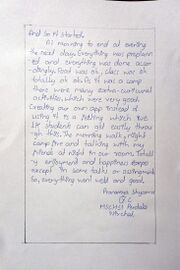 And So it started.
At morning to end at evening
the next day. Everything was preplann
ed and everything was done accor
dingly. Food was ok, class was ok
totally ok ok. As it was a camp
there were many extra-curricural
activities, which were very good.
Creating our own app instead of
using it is a thing which
students can get easily throu
gh this. The morning walk, night
camp fire and talking with my
friends at night in our room. Totall
y enjoyment and happiness
except in some talks or assignments
So, everything went well and good.